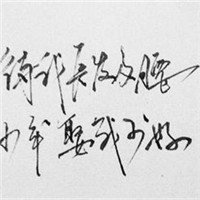 待我长发及腰
少年娶我可好